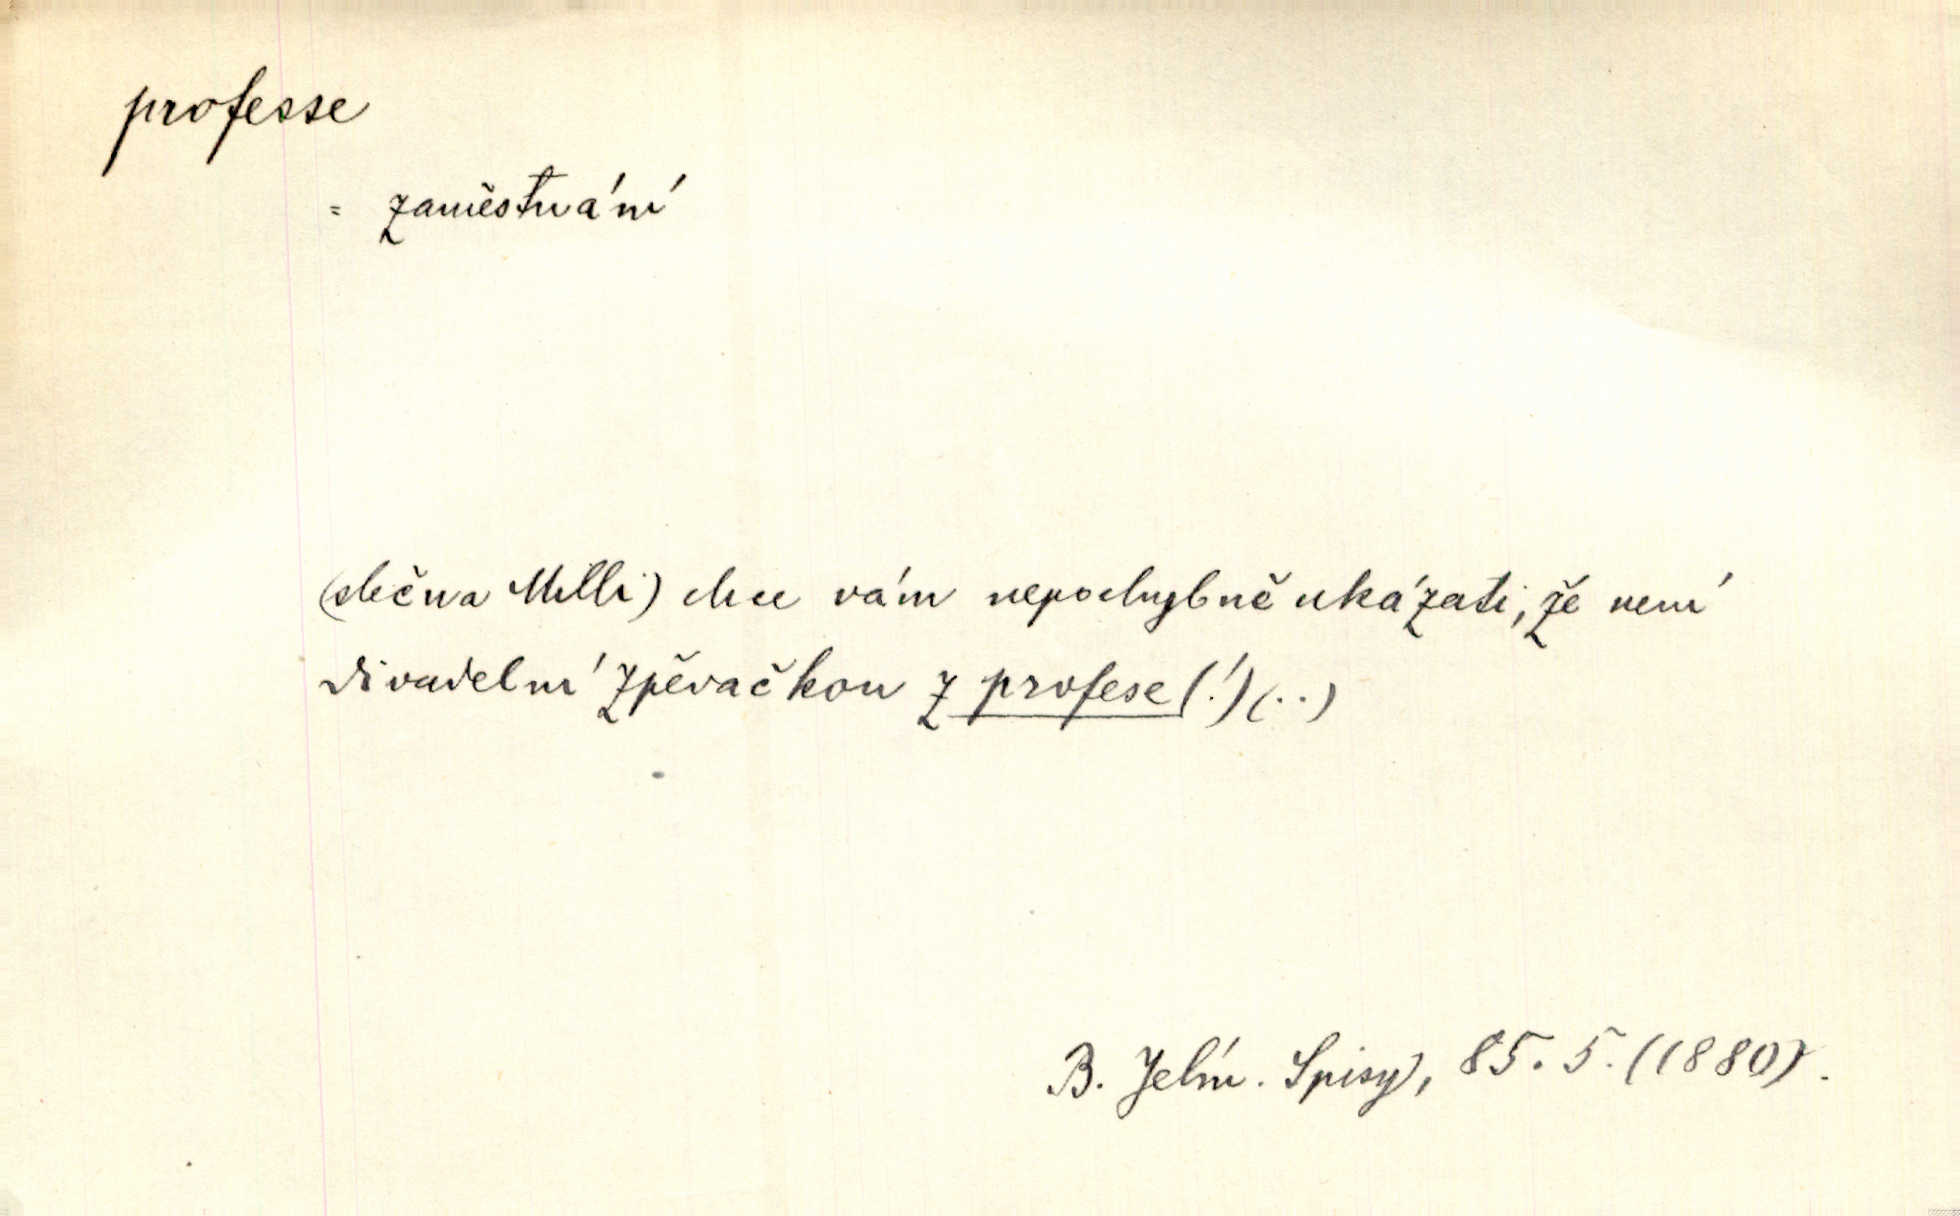 professe
= zaměstnání
(slečna Milli) chce vám nepochybně ukázati, že není
divadelní zpěvačkou z profese (!) (..)
B. Jelín. Spisy, 85. 5. (1880).